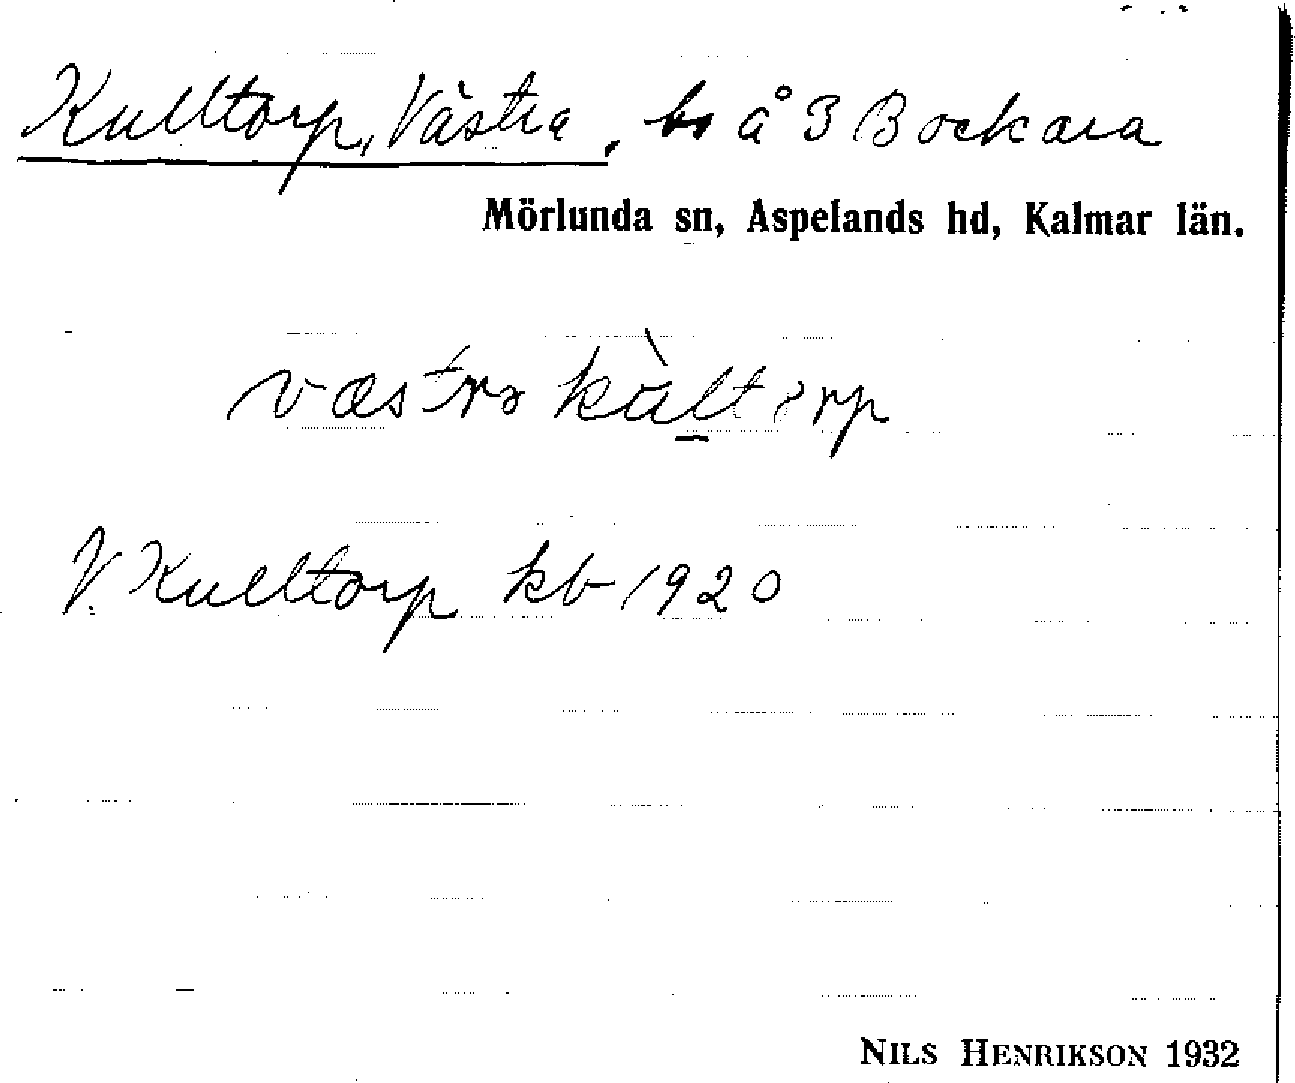 Kulltorp, Västra, bs å 3 Bockara
Mörlunda sn, Aspelands hd, Kalmar län.
væstra kùltorp
V. Kulltorp kb 1920
NILS HENRIKSON 1932